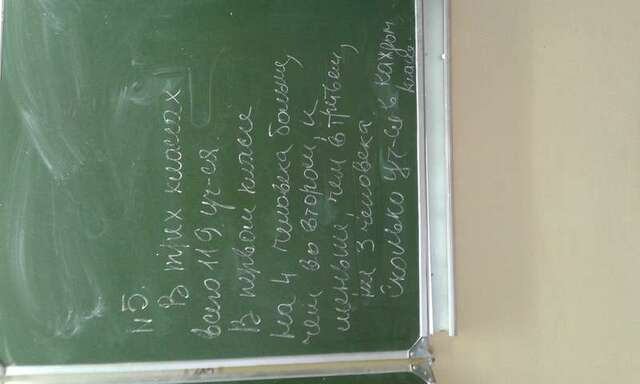 №5.
В трех классах
всего 119 уч-ся.
В первом классе
на 4 человека больше,
чем во втором, и
меньше, чем в третьем,
на 3 человека.
Сколько уч-ся в каждом
классе.